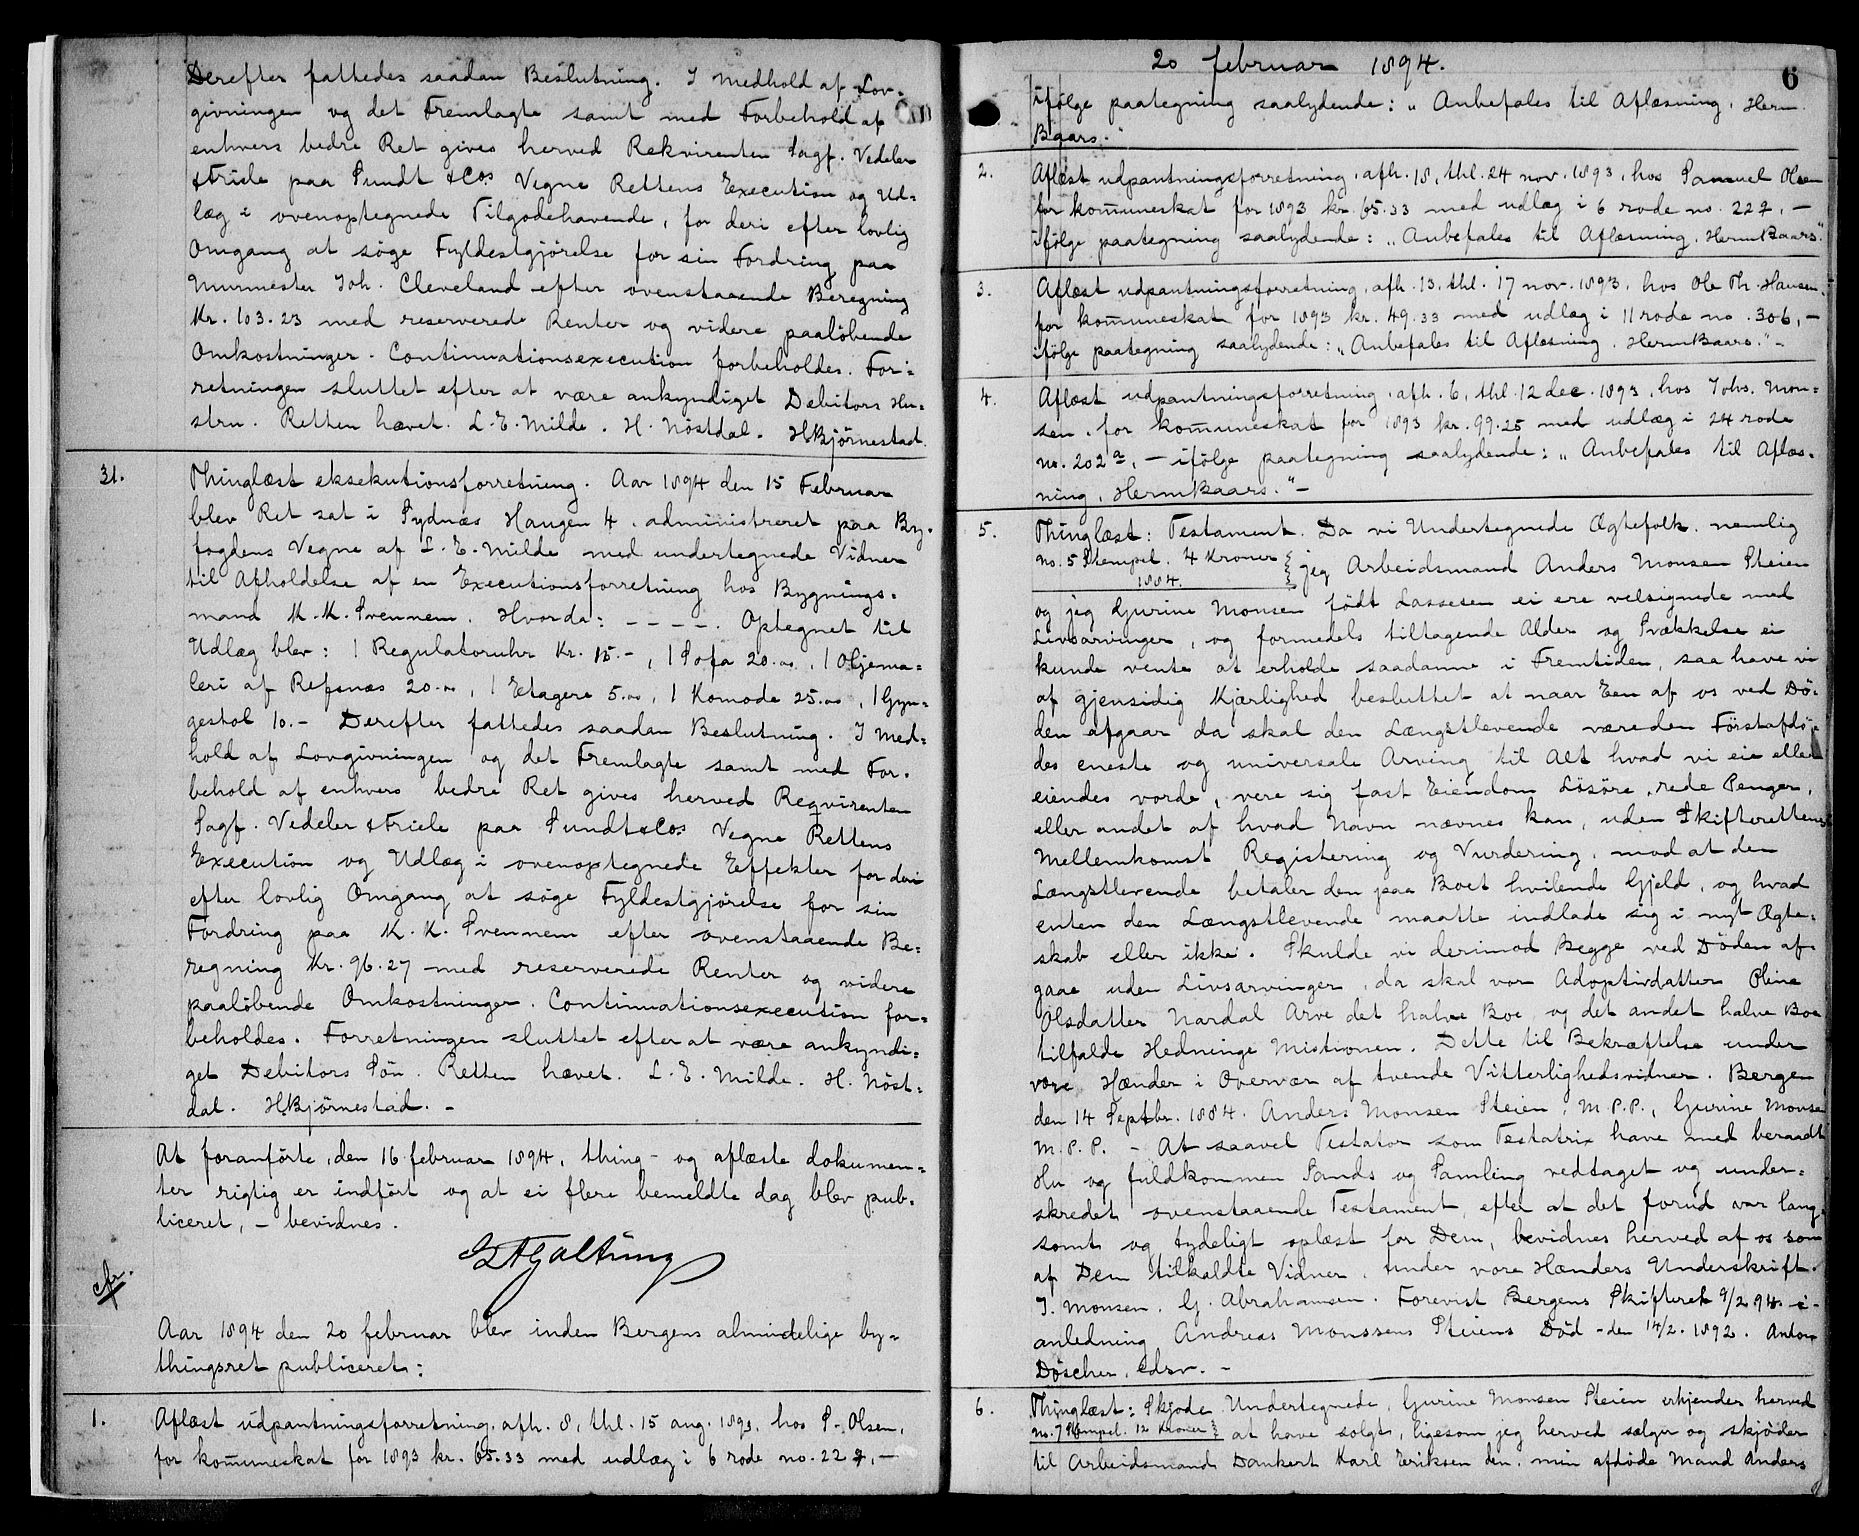 Derefter fattedes saadan Beslutning. I Medhold af Lov-
givningen og det Fremlagte samt med Forbehold af
enhvers bedre Ret gives herved Rekvirenten Sagf. Vedeler
& Friele paa Sundt & Cos Vegne Rettens Execution og Ud-
læg i ovenoptegnede Tilgodehavende, for deri efter lovlig
Omgang at söge Fyldestgjörelse for sin Fordring paa
Murmester Joh. Cleveland efter ovenstaaende Beregning
Kr. 103.23 med reserverede Renter og videre paalöbende
Omkostninger. Continuationsexecution forbeholdes. For-
retningen sluttet efter at være ankyndiget Debitors Hu-
stru. Retten hævet. L. E. Milde. H. Nöstdal. HBjörnestad.
31. Thinglæst eksekutionsforretning. Aar 1894 den 15 Februar
blev Ret sat i Sydnæs Haugen 4, administreret paa By-
fogdens Vegne af L. E. Milde med undertegnede Vidner
til Afholdelse af en Executionsforretning hos Bygnings-
mand K. K. Svennem. Hvorda: - - - -. Optegnet til
Udlæg blev: 1 Regulatoruhr Kr. 15.-, 1 Sofa 20.00, 1 Oljema-
leri af Refsnæs 20.00, 1 Etagere 5.00, 1 Komode 25.00, 1 Gyn-
gestol 10.- Derefter fattedes saadan Beslutning. I Med-
hold af Lovgivningen og det Fremlagte samt med For-
behold af enhvers bedre Ret gives herved Reqvirenten
Sagf. Vedeler & Friele paa Sundt & Cos Vegne Rettens
Execution og Udlæg i ovenoptegnede Effekter for deri
efter lovlig Omgang at söge Fyldestgjörelse for sin
Fordring paa K. K. Svennem efter ovenstaaende Be-
regning Kr. 96.27 med reserverede Renter og videre
paalöbende Omkostninger. Continuationsexecution for-
beholdes. Forretningen sluttet efter at være ankyndi-
get Debitors Sön. Retten hævet. L. E. Milde. H. Nöst-
dal. HBjörnestad. -
At foranförte, den 16 februar 1894, thing- og aflæste dokumen-
ter rigtig er indfört og at ei flere bemeldte dag blev pub-
liceret, - bevidnes.
cfr.
Aar 1894 den 20 februar blev inden Bergens almindelige by-
thingsret publiceret:
1. Aflæst udpantningsforretning, afh. 8, thl. 15 aug. 1893, hos S. Olsen,
for kommuneskat for 1893 kr. 65.33 med udlæg i 6 rode no. 227, -
20 februar 1894.
6
ifölge paategning saalydende: "Anbefales til Aflæsning. Herm
Baars."
2. Aflæst udpantningsforretning, afh. 18, thl. 24 nov. 1893, hos Samuel Olsen
for kommuneskat for 1893 kr. 65.33 med udlæg i 6 rode no. 227, -
ifölge paategning saalydende: "Anbefales til Aflæsning. HermBaars."
3. Aflæst udpantningsforretning, afh. 13, thl. 17 nov. 1893, hos Ole Th. Hansen,
for kommuneskat for 1893 kr. 49.33 med udlæg i 11 rode no. 306, -
ifölge paategning saalydende: "Anbefales til Aflæsning. HermBaars." -
4. Aflæst udpantningsforretning, afh. 6, thl. 12 dec. 1893, hos Johs. Mon-
sen, for kommuneskat for 1893 kr. 99.25 med udlæg i 24 rode
no. 202a, - ifölge paategning saalydende: "Anbefales til Aflæs-
ning. HermBaars." -
5. Thinglæst: Testament. Da vi Undertegnede Ægtefolk, nemlig
no. 5 Stempel. 4 Kroner 1884. jeg Arbeidsmand Anders Monsen Steien
og jeg Gurine Monsen födt Lassesen ei ere velsignede med
Livsarvinger, og formedels tiltagende Alder og Svækkelse ei
kunde vente at erholde saadanne i Fremtiden, saa have vi
af gjensidig Kjærlighed besluttet at naar Een af os ved Dö-
den afgaar da skal den Længstlevende være den Förstafdö-
des eneste og universale Arving til Alt hvad vi eie eller
eiendes vorde, være sig fast Eiendom Lösöre, rede Penger,
eller andet af hvad Navn nævnes kan, uden Skifterettens
Mellemkomst Registering og Vurdering, mod at den
Længstlevende betaler den paa Boet hvilende Gjeld, og hvad
enten den Længstlevende maatte indlade sig i nyt Ægte-
skab eller ikke. Skulde vi derimod begge ved Döden af-
gaae uden Livsarvinger, da skal vor Adoptivdatter Oline
Olsdatter Nardal Arve det halve Boe, og det andet halve Boe
tilfalde Hedninge Mistionen. Dette til Bekræftelse under
vore Hænder i Overvær af tvende Vitterlighedsvidner. Bergen
den 14 Septbr. 1884. Anders Monsen Steien, M.P.P., Gurine Monsen
M.P.P. - At saavel Testator som Testatrix have med beraadt
Hu og fuldkommen Sands og Samling vedtaget og under-
skredet ovenstaaende Testament, efter at det forud var lang-
somt og tydeligt oplæst for Dem, bevidnes herved af os som
af Dem tilkaldte Vidner, under vore Hænders Underskrift.
J. Monsen. G. Abrahamsen. Forevist Bergens Skifteret 9/2 94 i
anledning Andreas Monssens Steiens Död den 14/2. 1892. Anton
Döscher, edsv. -
6. Thinglæst: Skjöde. Undertegnede, Gurine Monsen Steien erkjender herved
no. 7 Stempel. 12 Kroner at have solgt, ligesom jeg herved sælger og skjöder
til Arbeidsmand Dankert Karl Eriksen den, min afdöde Mand Anders